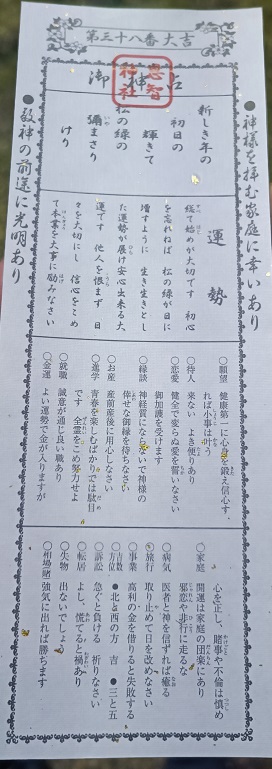 第三十八番 大吉
御神占
恩智神社
●神様を拝む家庭に幸いあり
●敬神の前途に光明あり
新しき年の
初日の
輝きて
松の緑の
彌まさり
けり
運勢
総て始めが大切です 初心
を忘れねば 松の緑が日に
増すように 生き生きとし
た運勢が展け安心出来る大
運です 他人を恨まず 日
々を大切にし 信心をこめ
て本業を大事に励みなさい
○願望 健康第一に心身を鍛え信心す
れば小事は叶う
○待人 来ない よき便りあり
○恋愛 健全で変らぬ愛を誓いなさい
御加護を受けます
○縁談 神経質にならないで神様の
倖せな御縁を待ちなさい
○お産 産前産後に用心しなさい
○進学 青春を楽しむばかりでは駄目
です 全霊をこめ努力せよ
○就職 誠意が通じ良い職あり
○金運 よい運勢で金が入りますが
心を正し、賭事や不倫は慎め
○家庭 開運は家庭の団楽にあり
邪恋や非行に走るな
○病気 医者と神を信ずれば癒る
○旅行 取り止めて日を改めなさい
○事業 高利の金を借りると失敗する
○吉方吉数 ●北と西の方 吉 ●三と五
○訴訟 急ぐと負ける 祈りなさい
○転居 よし 慌てると禍あり
○失物 出ないでしょう
○相場賭 強気に出れば勝ちます